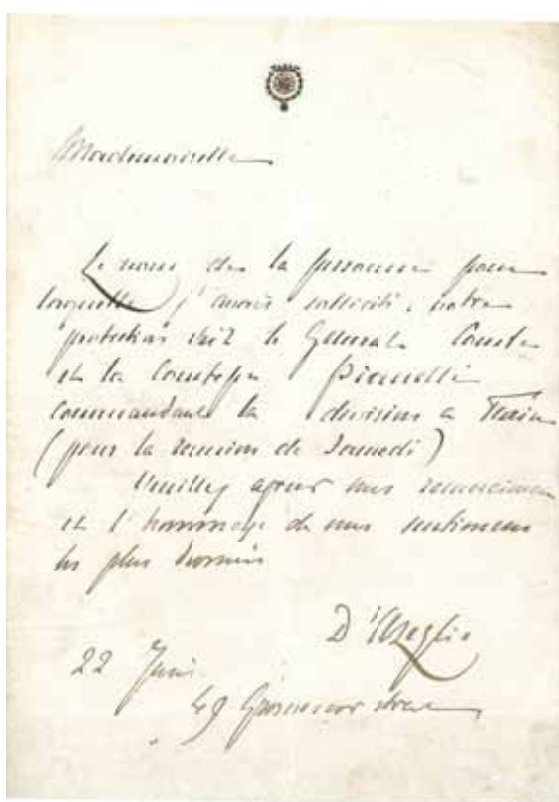 Mademoiselle
Le nom de la personne pour
laquelle j'avais sollicité votre
protection est le General Comte
et la Comtesse Pianelli
Commandant la division a Turin
(pour la reunion de Samedi)
Veuillez agreer mes remerciemens
et l'hommage de mes sentimens
les plus
D'Azeglio
22 Juin
49 Grosvenor street